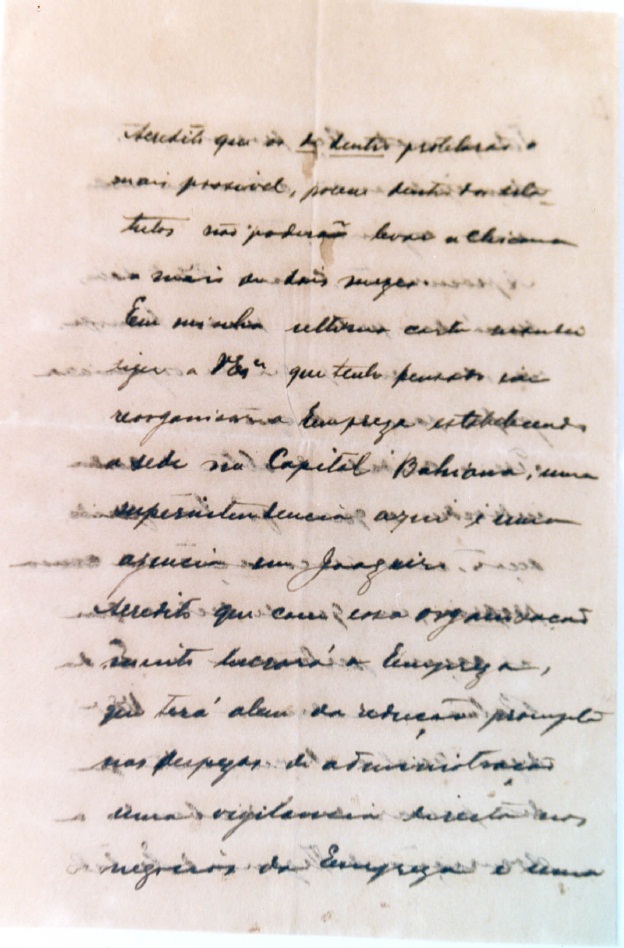 Acredito que os de dentro protelarão o
mais possivel, porem dentro dos esta-
tutos não poderão levar a chicana
a mais de dois mezes.
Em minha ultima carta
a VExª que tenho pensado em
reorganisar a Empreza estabelecendo
a sede na Capital Bahiana, uma
superintendencia aqui e uma
agencia em Joazeiro.
Acredito que com essa organisação
muito lucrará a Empreza,
que terá alem da redução prompta
nas despezas de administração
uma vigilancia directa nos
negocios da Empreza e uma